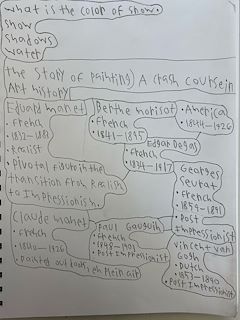 what is the color of snow.
snow
shadows
water
the story of painting) A crash course in
Art history
Eduard manet
• French
• 1832-1883
• realist
• Pivotal figure in the
transition from Realism
to Impressionism.
Berthe morisot
• French
• 1841-1895
• America
• 1844-1926
Edgar Degas
• French
• 1834-1917
Georges
Seurat
• French
• 1859-1891
• Post
Impressionist
Claude monet
• French
• 1840-1926
• Painted outdoors, en Plein air
Paul Gauguin
• French
• 1848-1903
• Post Impressionist
vincent van
Gogh
• Dutch
• 1853-1890
• Post impressionist